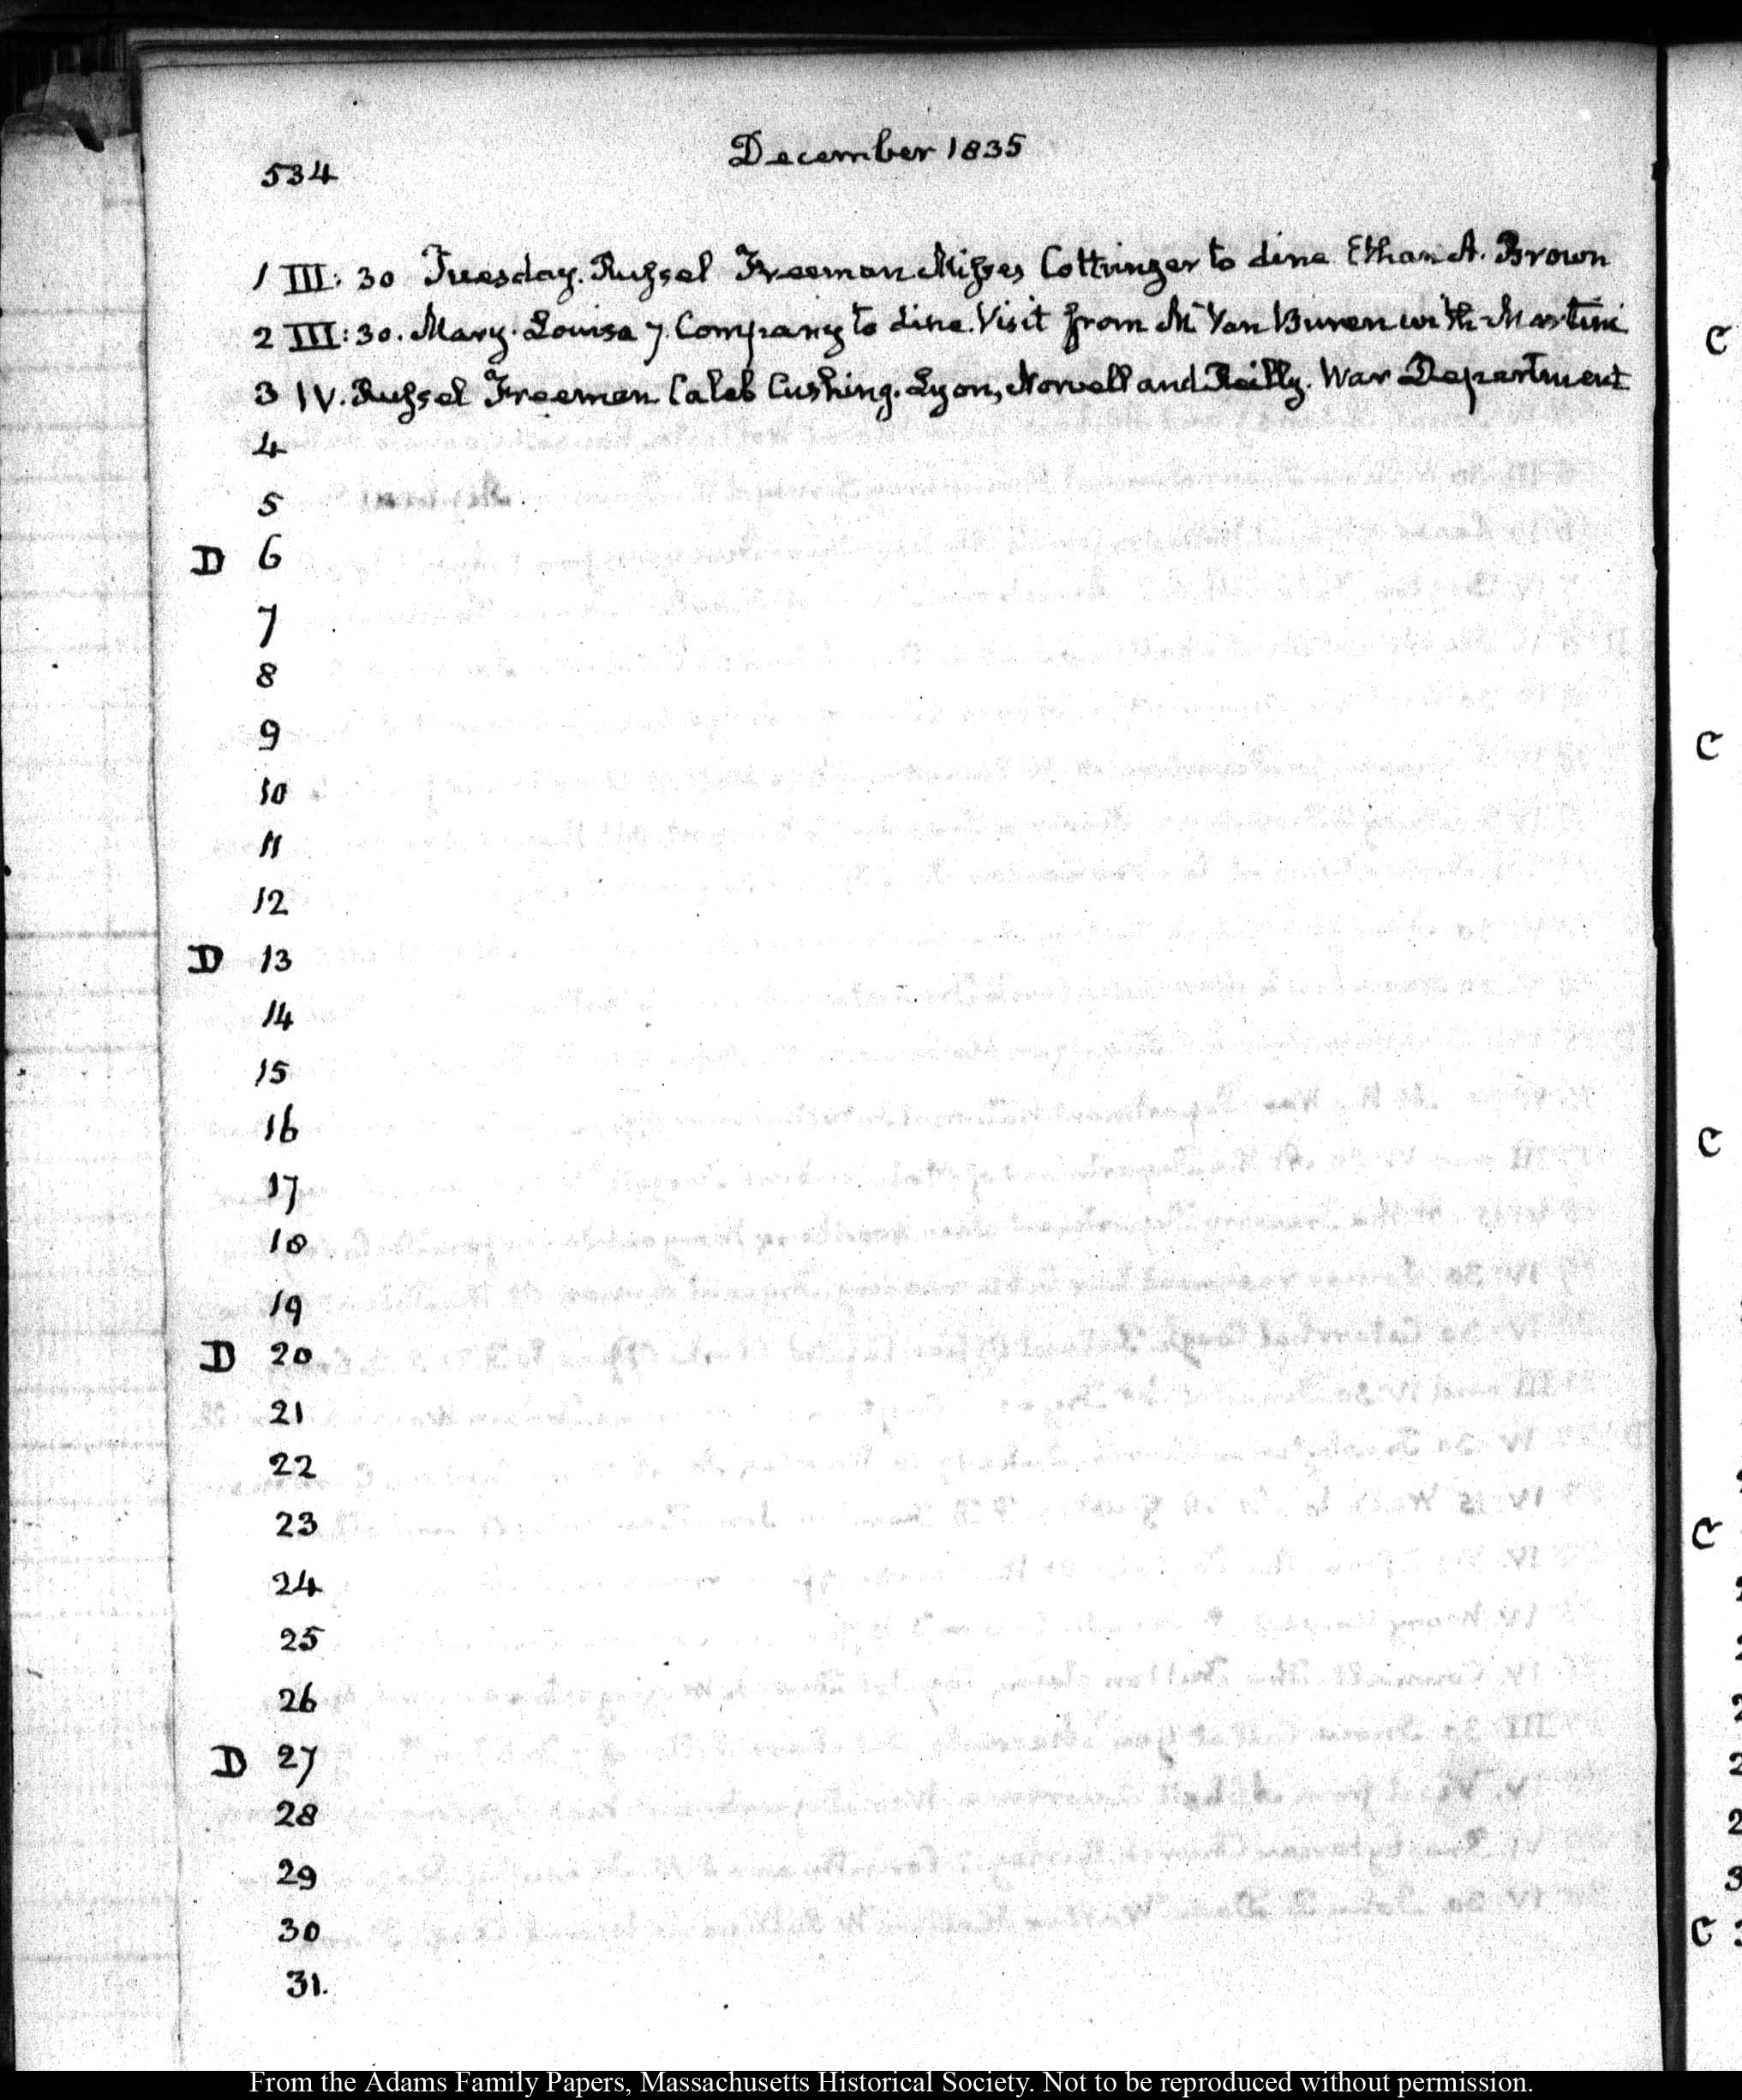 December 1835
534
1 III: 30 Tuesday. Russel Freeman Misses Cottringer to dine Ethan A. Brown
2 III: 30. Mary. Louisa 7. Company to dine. Visit from Mr Van Buren with Martini
3 IV. Russel Freeman. Caleb Cushing. Lyon, Norvell and Reilly. War Department
4
5
D 6
7
8
9
10
11
12
D 13
14
15
16
17
18
19
D 20
21
22
23
24
25
26
D 27
28
29
30
31.
C
C
C
C
C
From the Adams Family Papers, Massachusetts Historical Society. Not to be reproduced without permission.